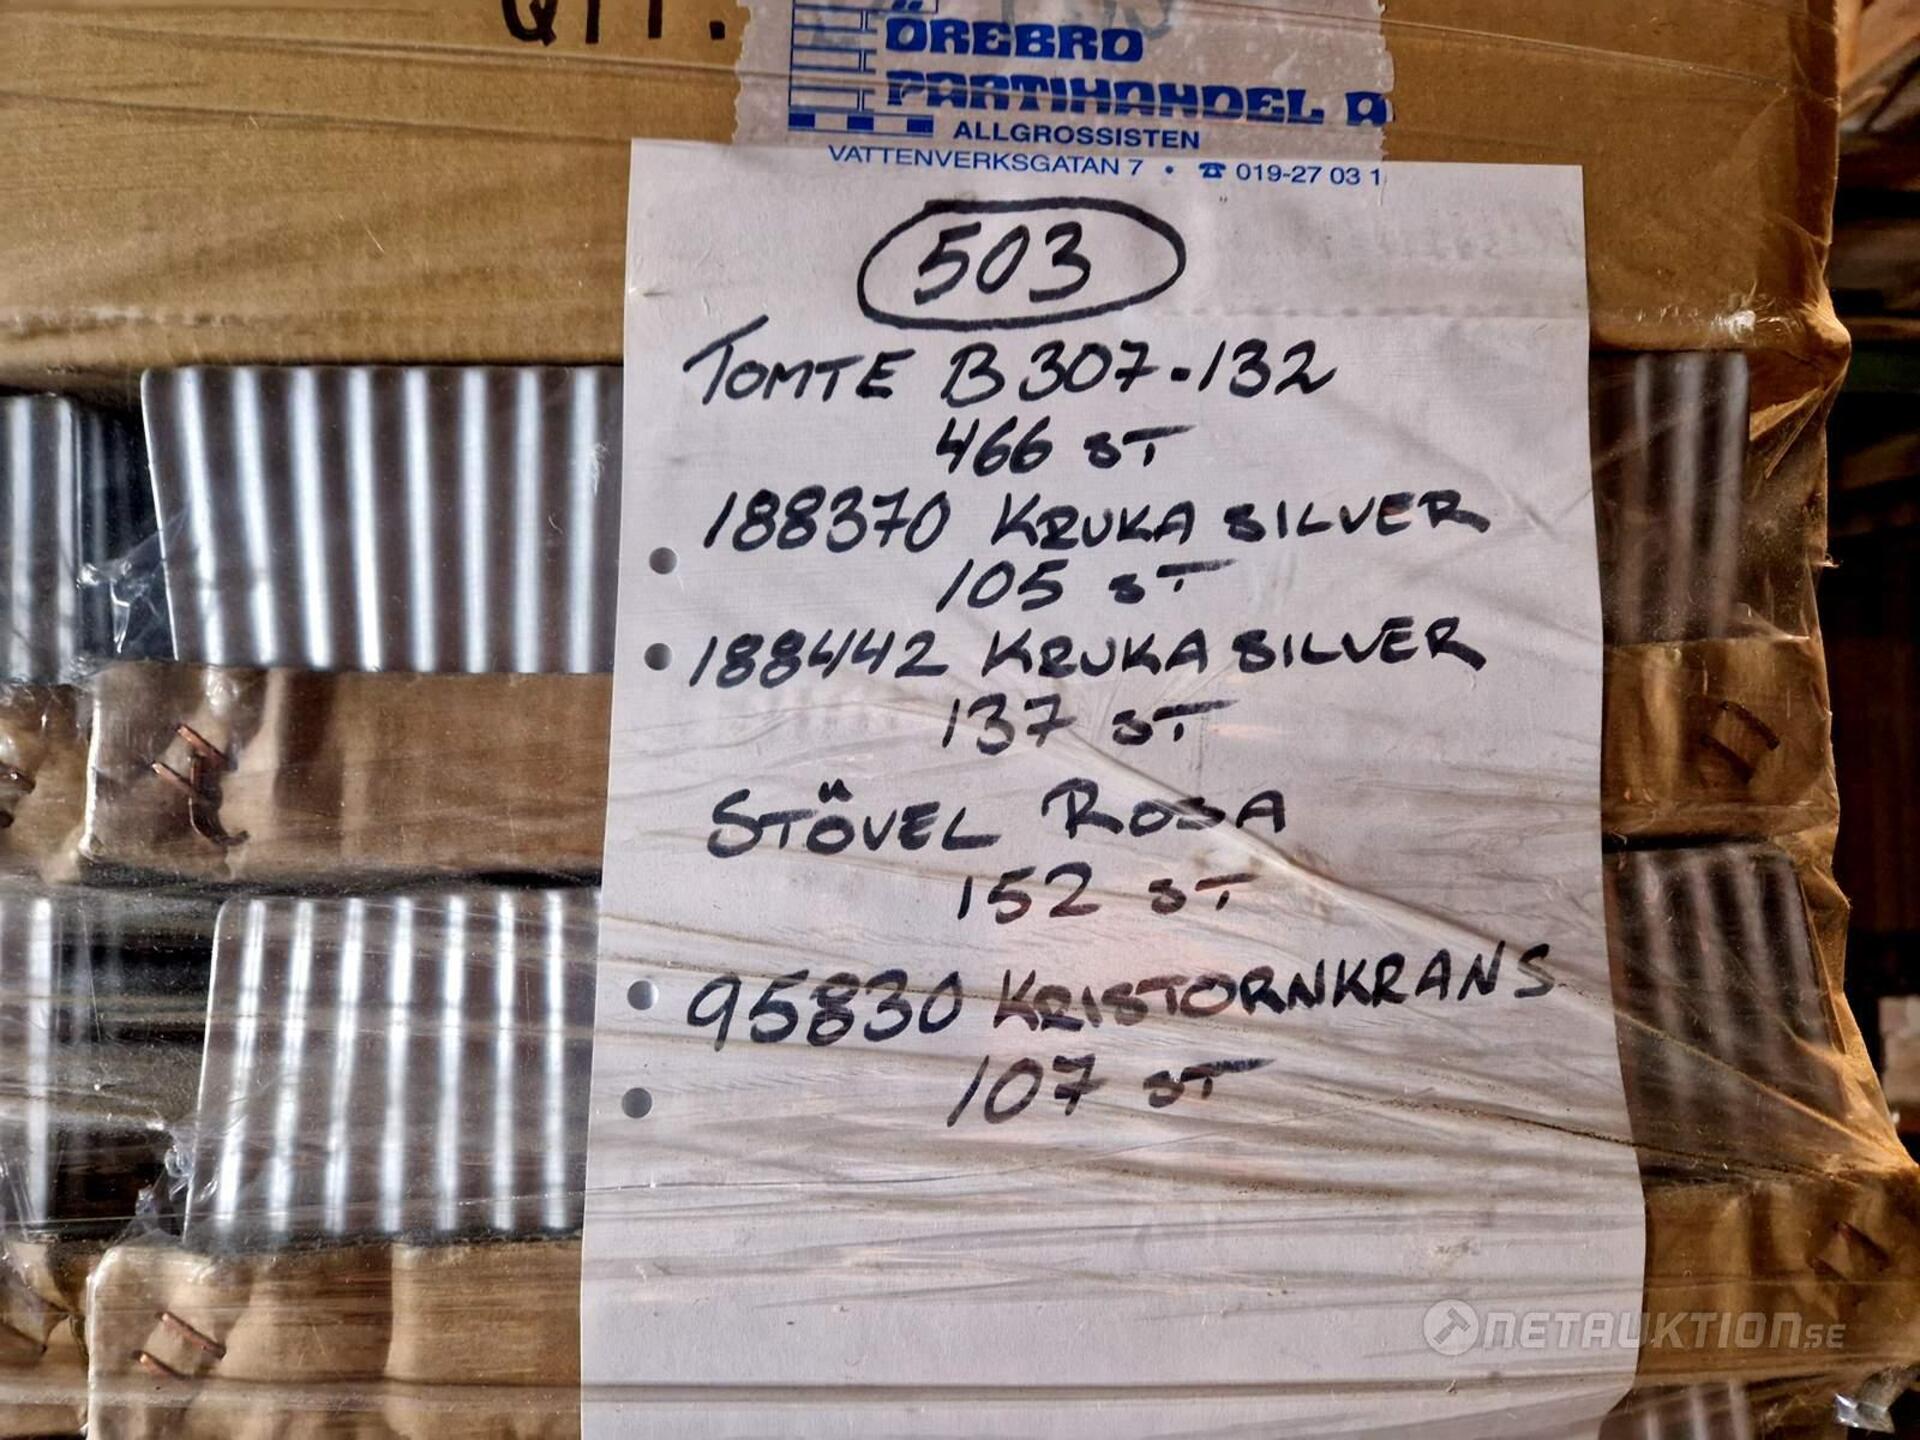 QTY.
ÖREBRO
PARTIHANDEL A
ALLGROSSISTEN
VATTENVERKSGATAN 7 • ☎ 019-27 03 1
503
TOMTE B307-132
466 ST
188370 KRUKA SILVER
105 ST
188442 KRUKA SILVER
137 ST
STÖVEL ROSA
152 ST
95830 KRISTORNKRANS
107 ST
NETAUKTION.SE